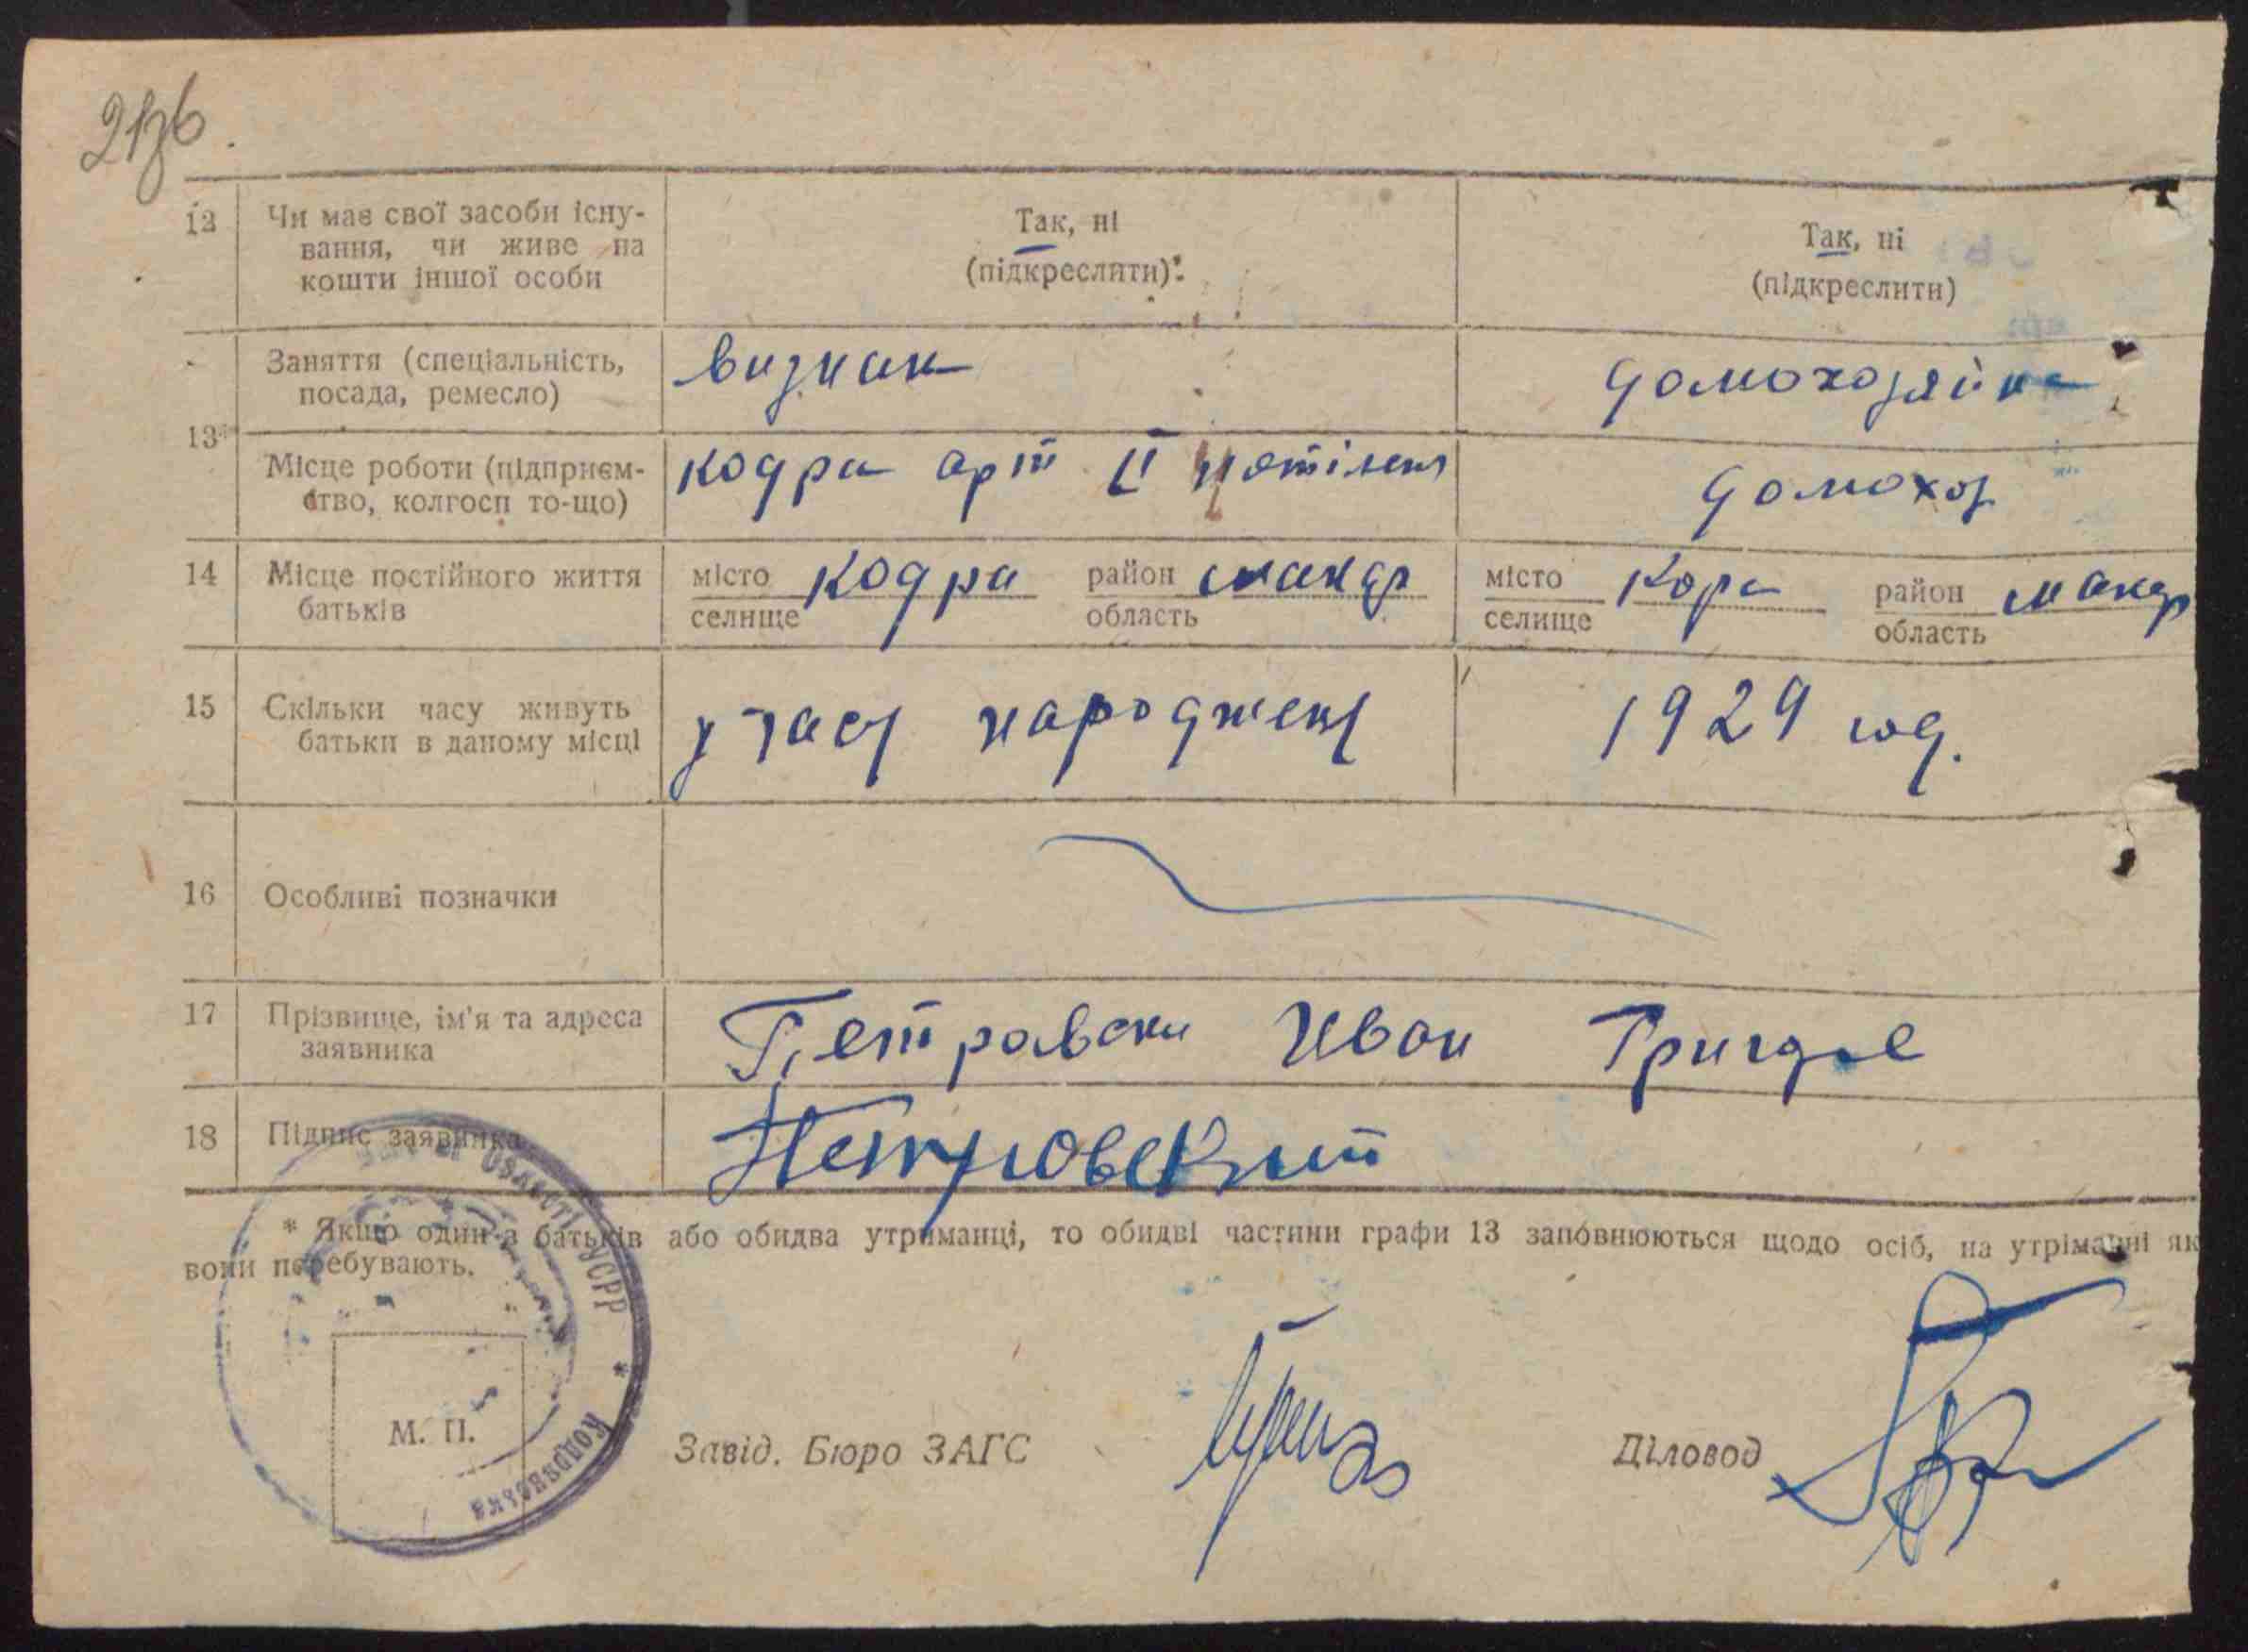 12 Чи має свої засоби існу-
вання, чи живе на
кошти іншої особи
Так, ні
(підкреслити)
Так, ні
(підкреслити)
13
Заняття (спеціальність,
посада, ремесло)
визнак
домохозяйка
Місце роботи (підприєм-
ство, колгосп то-що)
кодра арт II
домохоз
14 Місце постійного життя
батьків
місто
селище
Кодра
район
область
макар
місто
селище
Кодра
район
область
макар
15 Скільки часу живуть
батьки в даному місці
у часу народжен
1929 год.
16 Особливі позначки
17 Прізвище, ім'я та адреса
заявника
Петровски Иван
18 Підпис заявника
Петровский
* Якщо один з батьків або обидва утриманці, то обидві частини графи 13 заповнюються щодо осіб, на утріманні як
вони перебувають.
області УСРР * Кодрянська
М. П.
Завід. Бюро ЗАГС
Діловод